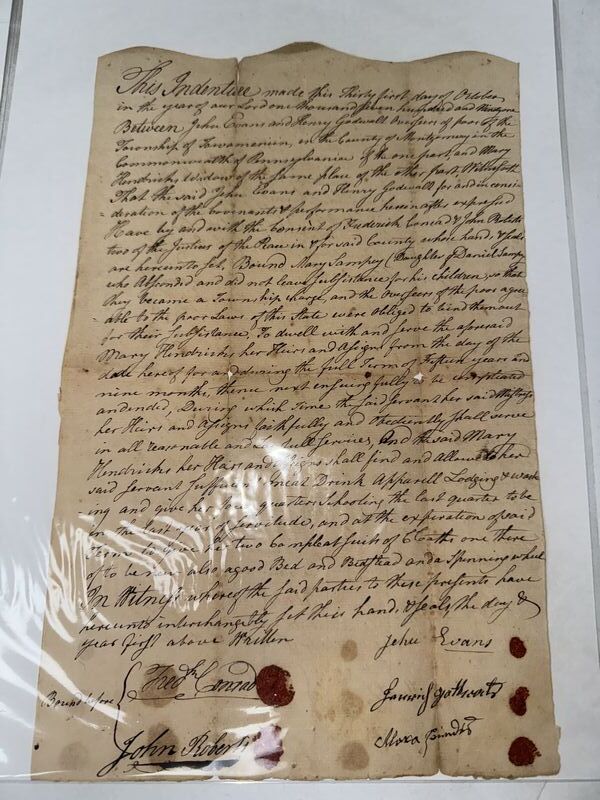 This Indenture made this Thirty first day of October
in the year of our Lord one thousand seven hundred and
Between John Evans and Henry Godwall Overseers of poor of the
Township of Towamensin, in the County of Montgomery in the
Commonwealth of Pennsylvania of the one part, and Mary
Hendricks Widow of the same place of the other part, Witnesseth
That the said John Evans and Henry Godwall for and in consi-
-deration of the Covenants & performance herein after expressed
Have by and with the Consent of Frederick Conrad & John Roberts
two of the Justices of the Peace in & for said County whose hands & seals
are hereunto set, Bound Mary Sampey (Daughter of Daniel Sampey
who Absconded and did not leave subsistance for his children, so that
they became a Township charge, and the Overseers of the poor agree-
-able to the poor Laws of this State were obliged to bind them out
for their Subsistance, To dwell with and serve the aforesaid
Mary Hendricks her Heirs and Assigns from the day of the
date hereof for and during the full Term of Fifteen years and
nine months, thence next ensuing fully to be compleated
and ended, During which Time the said Servant her said Mistress
her Heirs and Assigns faithfully and Obediently shall serve
in all reasonable and services, And the said Mary
Hendricks her Heirs and Assigns shall find and Allow to her
said Servant sufficient meat Drink Apparell Lodging & wash
-ing and give her four quarters schooling the last quarter to be
in the last year of servitude, and at the expiration of said
Term to give her two Compleat suits of Cloaths one there
of to be new also a good Bed and Bedstead and a Spinning wheel
In Witness whereof the said parties to these presents have
hereunto interchangeably set their hands & seals, the day &
year first above Written
Jehu Evans
Bound before
Fredk Conrad
John Roberts